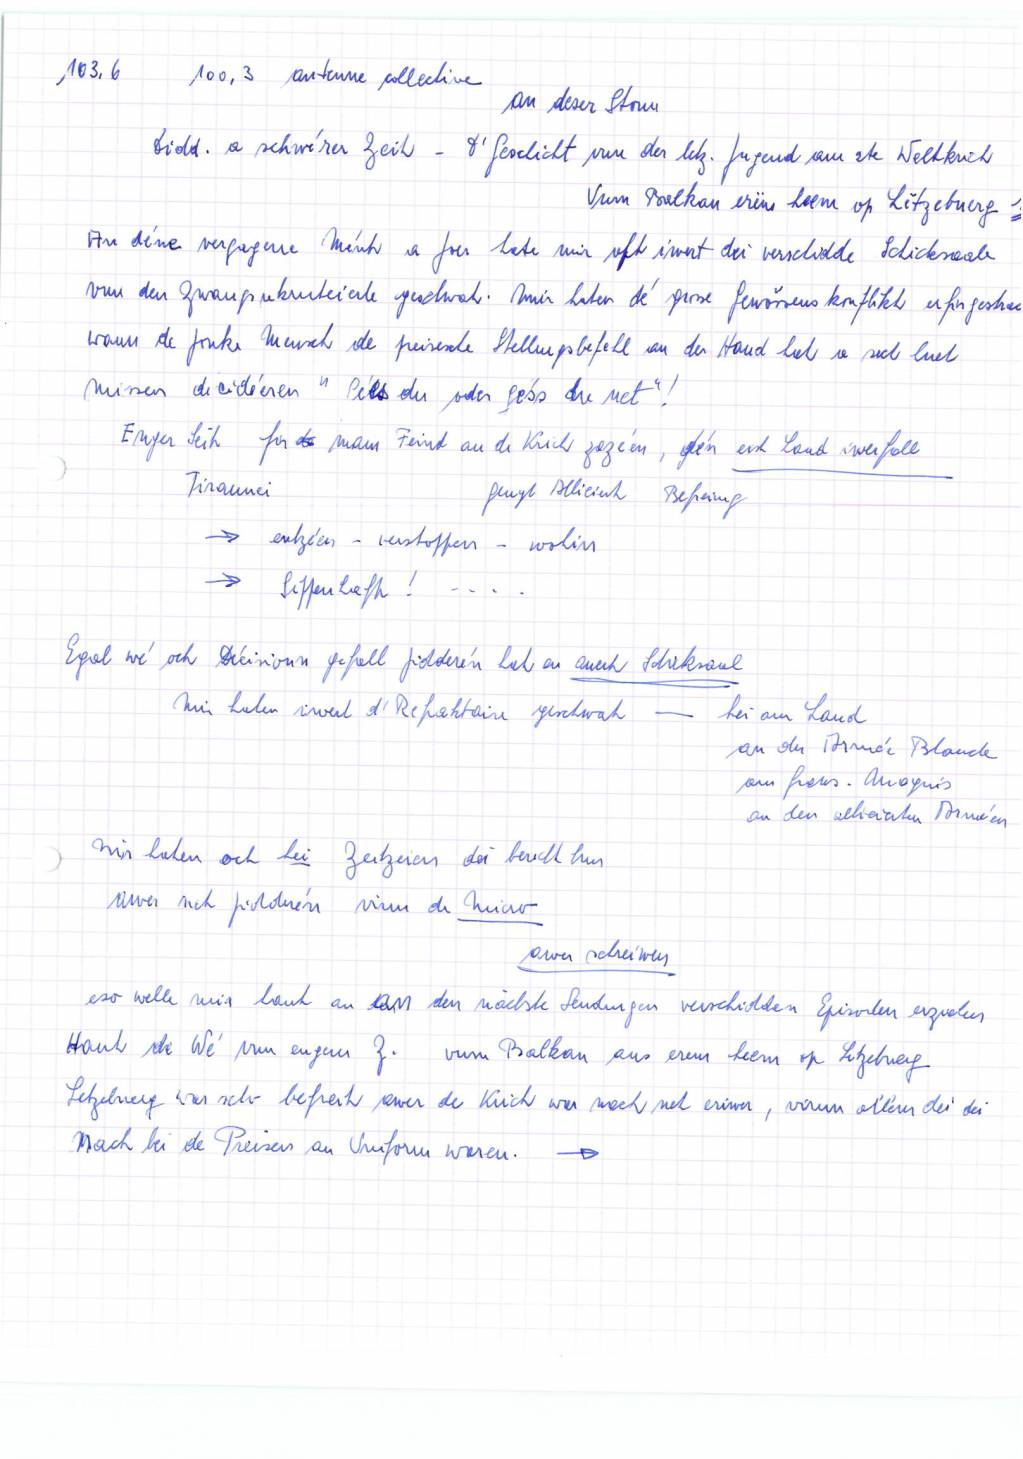 103,6 100,3 antenne collective
an deser Stonn
Lidd. a schwérer Zeit - D'Geschicht vun der letz. Jugend am 2te Weltkrich
Vum Balkan erëm heem op Lëtzebuerg
An déne vergagene Méint a Joer hate mir oft iwert déi verschidde Schicksaale
vun den Zwangsrekrutéierte geschwat. Mir haten dé grosse Gewëssenskonflikt
wann de jonke Mensch de preisesche Stellungsbefehl an der Hand hat a sech huet
missen decidéieren "Géss du oder géss du net"!
Enger Seit fir mam Feind an de Krich zezéen, dén eist Land iwerfall
Tirannei gengt Alliéiert Befreiung
→ entzéen - verstoppen - wohin
→ Sippenhaft! ----
Egal wé och Décisioun gefall jidderén hat en anert Schicksaal
Mir haten iwert d'Refraktaire geschwat — hei am Land
an der Armée Blanche
am frans. Maquis
an den alliéierten Arméen
Mir haten och hei Zeitzeien déi bericht hun
awer net jidderén virun de Micro
awer schreiwen
eso welle mir haut an an den nächste Sendungen verschidden Episoden erzielen
Haut de Wé vun engem J. vum Balkan aus erem heem op Letzebuerg
Letzebuerg war scho befreit awer de Krich war nach net eriwer, virun allem déi déi
nach bei de Preisen an Uniform waren. →